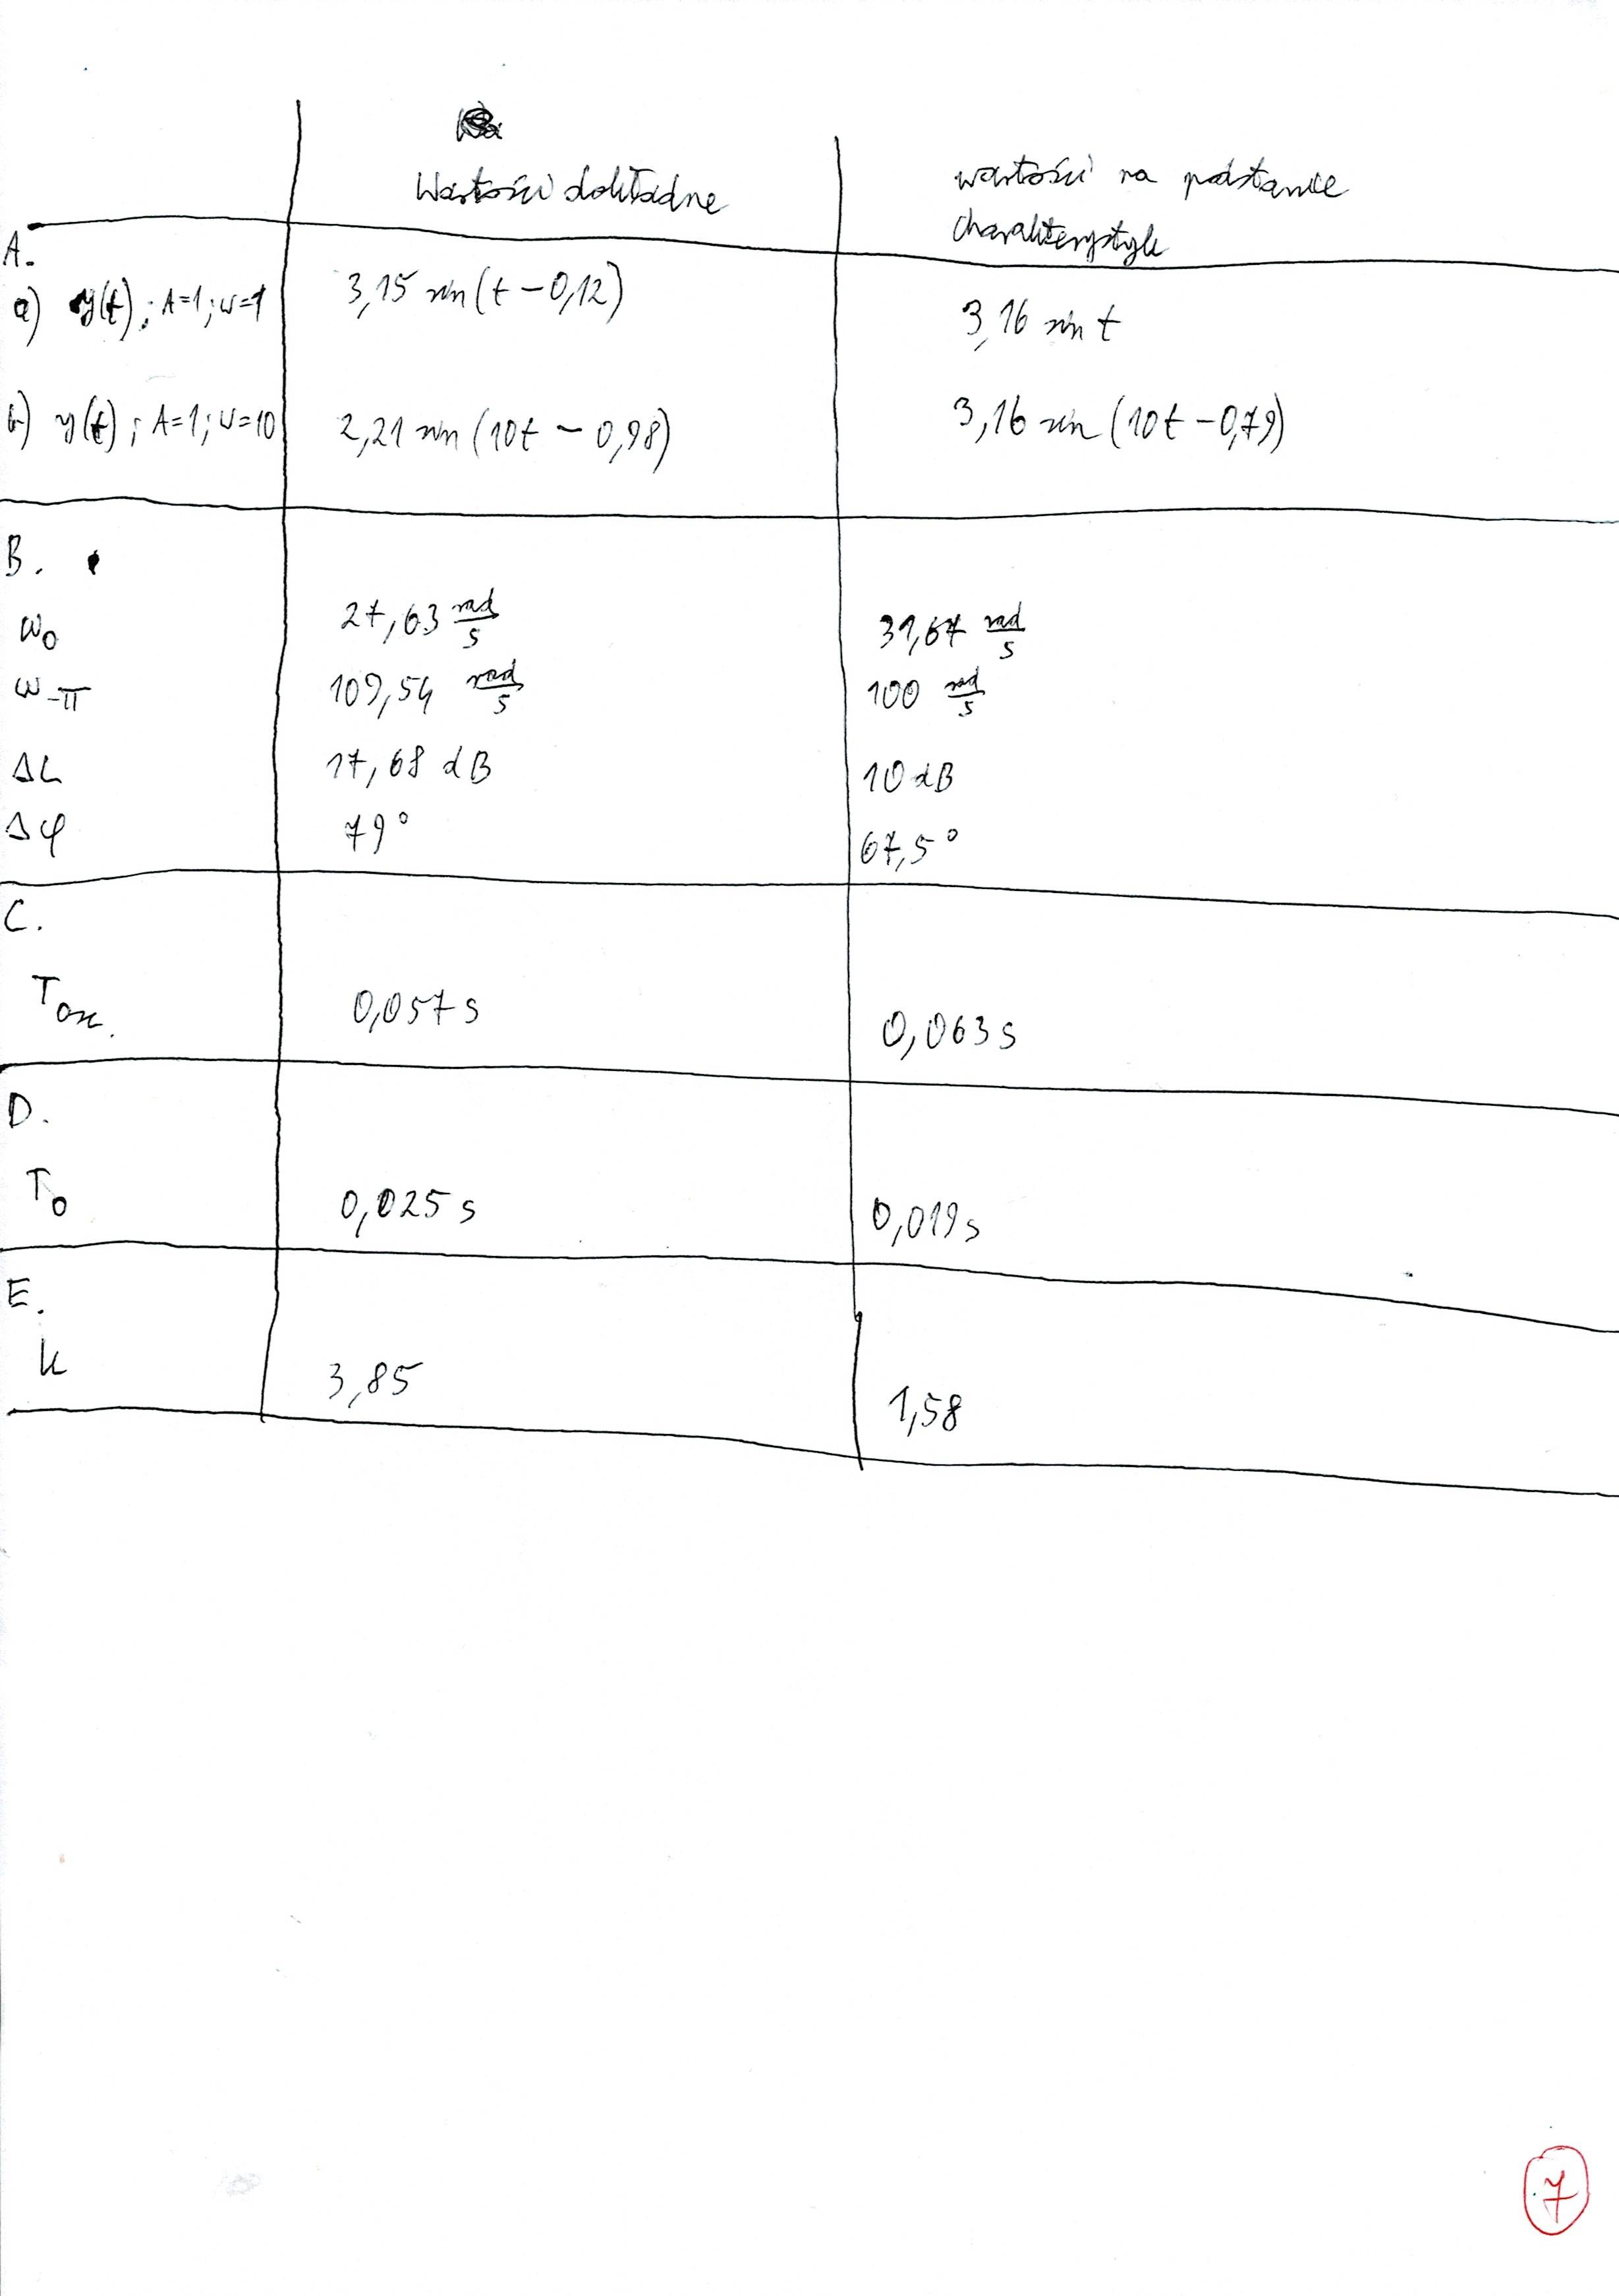 Wartości dokładne
wartości na podstawie
charakterystyk
A.
a) y(t); A=1; ω=1
3,15 sin(t − 0,12)
3,16 sin t
b) y(t); A=1; ω=10
2,21 sin(10t − 0,98)
3,16 sin(10t − 0,79)
B.
ω₀
27,63 rad/s
31,67 rad/s
ω-π
109,54 rad/s
100 rad/s
ΔL
17,68 dB
10 dB
Δφ
79°
67,5°
C.
Tosc.
0,057 s
0,063 s
D.
T₀
0,025 s
0,019 s
E.
k
3,85
1,58
7